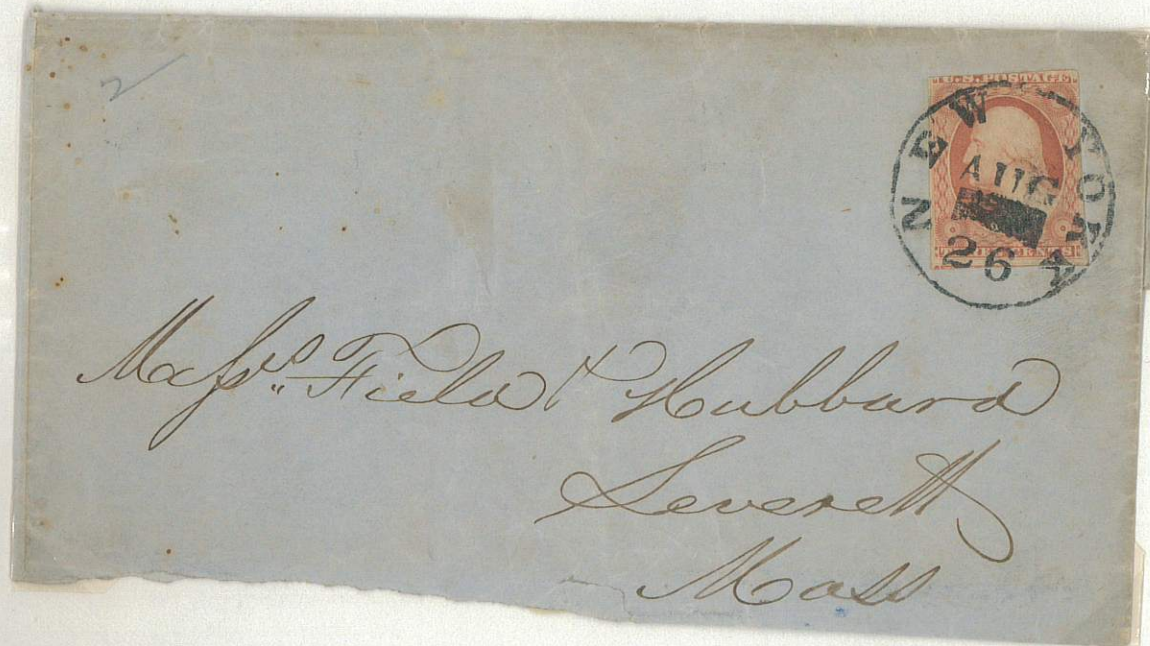 U.S. POSTAGE
NEW YORK
AUG
26
THREE CENTS
Messrs. Field & Hubbard
Leverett
Mass